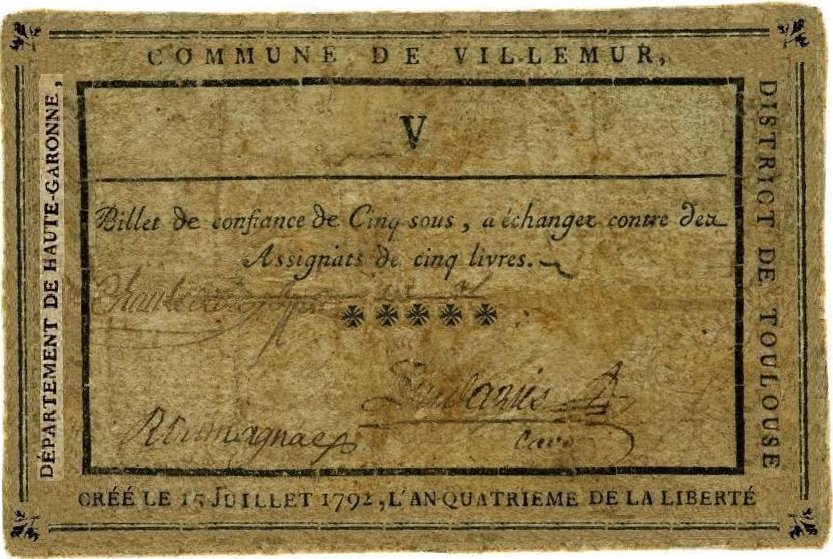 COMMUNE DE VILLEMUR,
DÉPARTEMENT DE HAUTE-GARONNE,
DISTRICT DE TOULOUSE
V
Billet de confiance de Cinq sous, a échanger contre des
Assignats de cinq livres.
CRÉÉ LE 15 JUILLET 1792, L'AN QUATRIEME DE LA LIBERTÉ